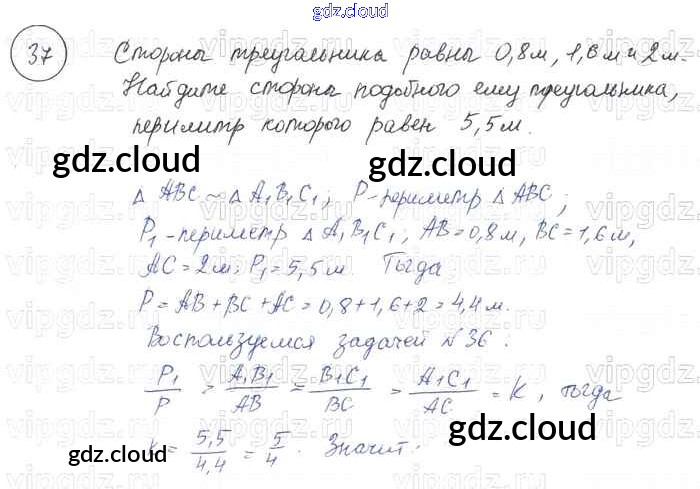 gdz.cloud
37 Стороны треугольника равны 0,8м, 1,6м и 2м.
Найдите стороны подобного ему треугольника,
периметр которого равен 5,5м.
gdz.cloud gdz.cloud
Δ ABC ~ Δ A₁B₁C₁; P-периметр Δ ABC;
P₁-периметр Δ A₁B₁C₁; AB=0,8м, BC=1,6м,
AC=2м; P₁=5,5м Тогда
P=AB+BC+AC=0,8+1,6+2=4,4м.
Воспользуемся задачей №36:
P₁/P = A₁B₁/AB = B₁C₁/BC = A₁C₁/AC = K, тогда
K= 5,5/4,4 = 5/4. Значит.
gdz.cloud gdz.cloud